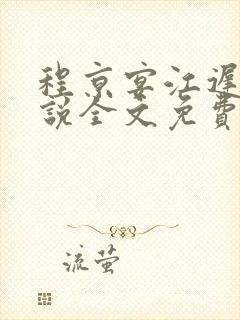 程京宴江遲
說全文免費
流萤